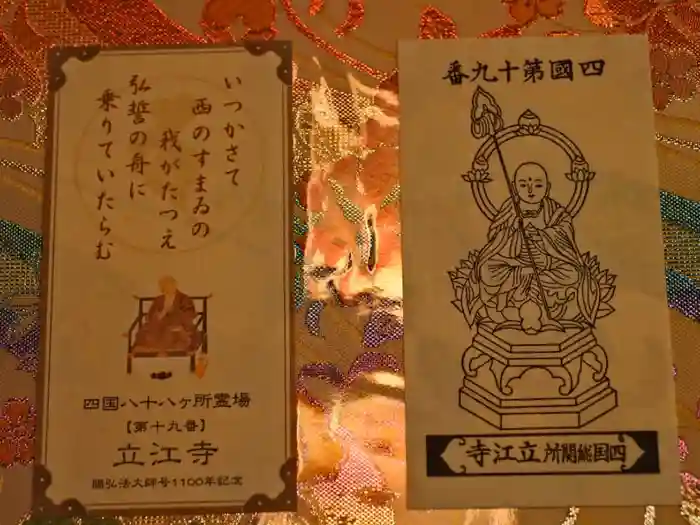 いつかさて
西のすまゐの
我がたつえ
弘誓の舟に
乗りていたらむ
四国八十八ヶ所霊場
【第十九番】
立江寺
賜弘法大師号1100年記念
番九十第國四
寺江立 所関総国四